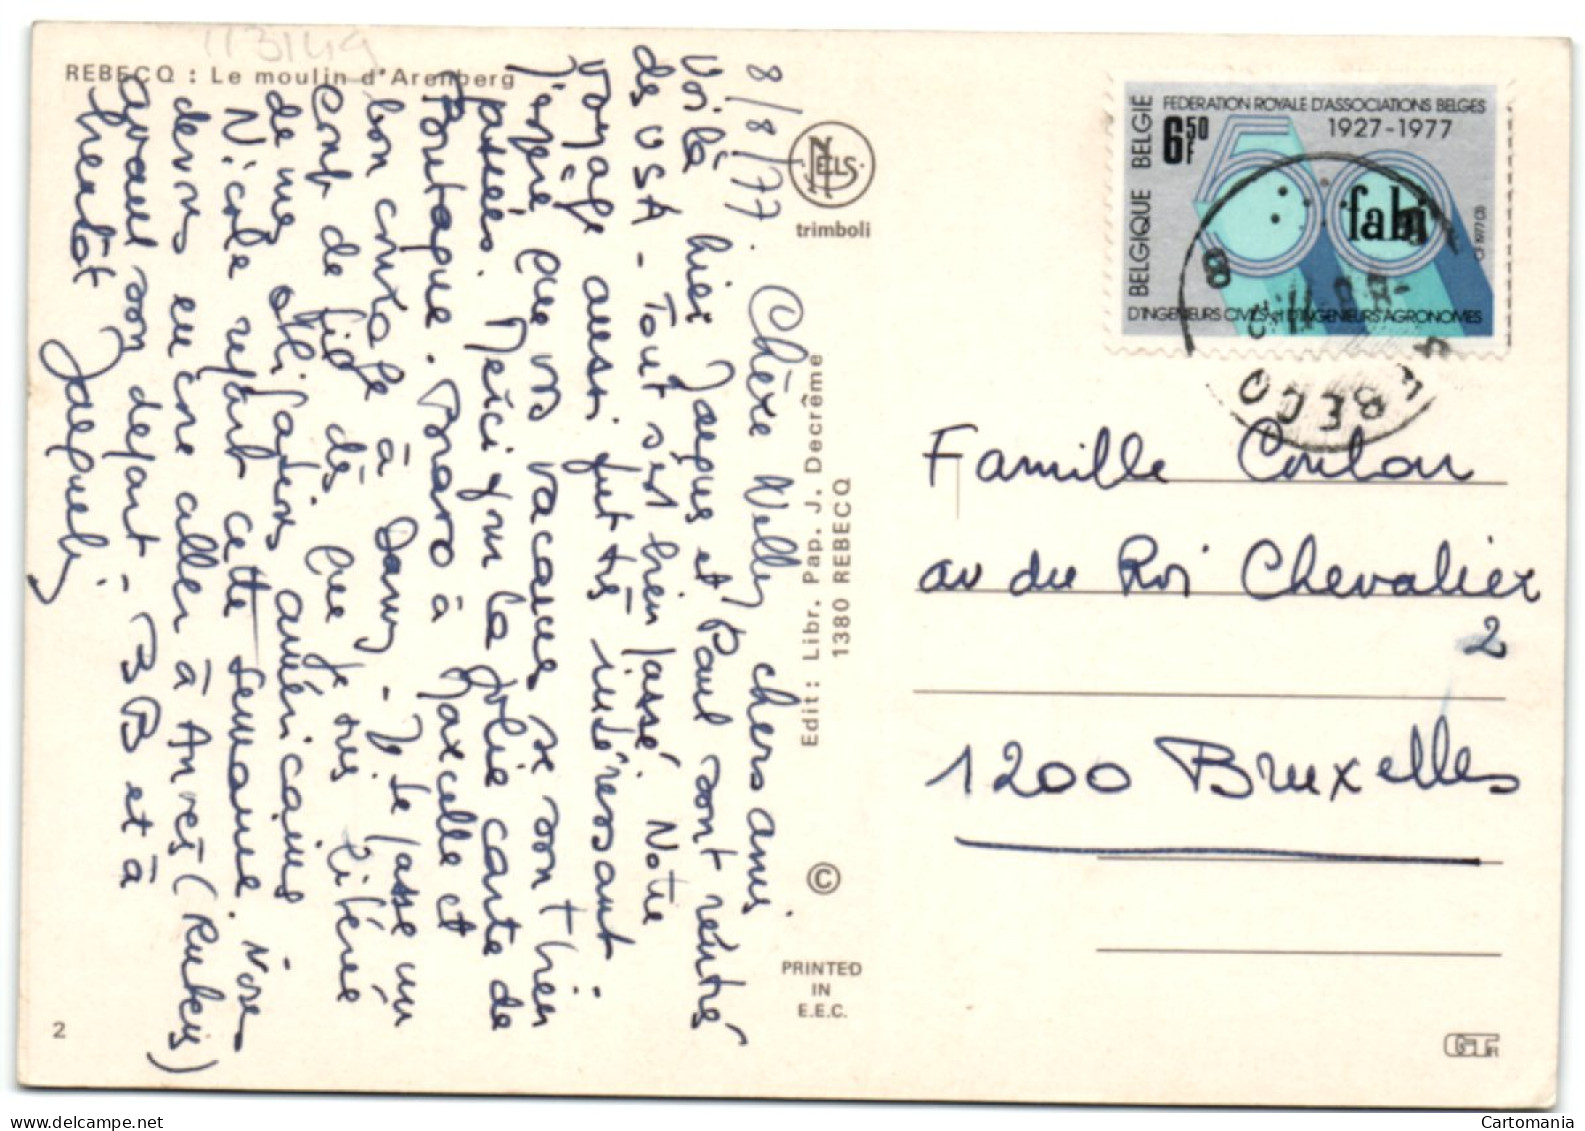 REBECQ : Le moulin d'Arenberg
8/8/77. Chère Nelly, chers amis.
Voilà hier Jacques et Paul sont rentré
des USA - Tout s'est bien passé. Notre
voyage aussi fut très intéressant.
J'espère que vos vacances se sont bien
passées. Merci pour la jolie carte de
Bravo à Maxcelle et
bon courage à Dany - Je passe un
coup de fil dès que je suis libérée
de mes obligations américaines
Nicole repart cette semaine. Nous
devons encore aller à Anvers (Rubens)
avant son départ - BB et à
bientôt
NELS
trimboli
Edit : Libr. Pap. J. Decrême
1380 REBECQ
©
PRINTED
IN
E.E.C.
2
BELGIQUE BELGIE
FEDERATION ROYALE D'ASSOCIATIONS BELGES
6 50 F
1927-1977
50
fabi
D'INGENIEURS CIVILS et D'INGENIEURS AGRONOMES
Famille Coulon
av du Roi Chevalier
2
1200 Bruxelles
Cartomania